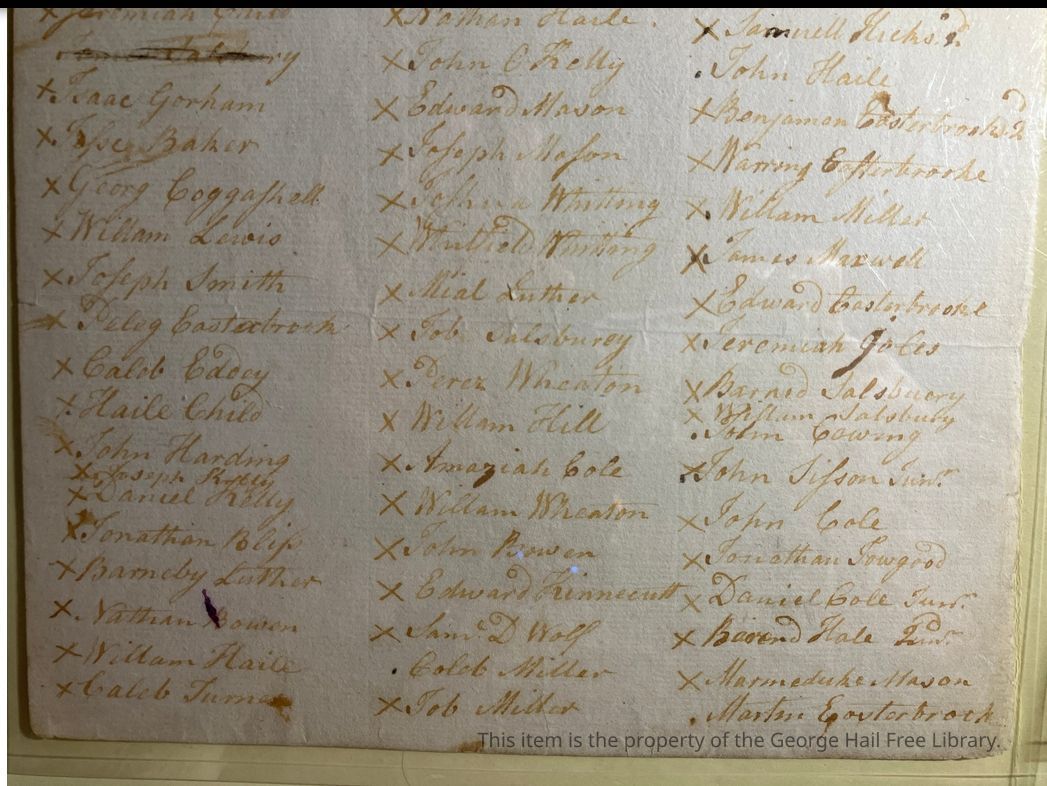 X Jeremiah Child
X Isaac Gorham
X Jesse Baker
X Georg Coggashell
X Willam Lewis
X Joseph Smith
X Peleg Easterbrook
X Calob Eddey
X Haile Child
X John Harding
X Joseph Kelly
X Daniel Kelly
X Jonathan Bliss
X Barneby Luther
X Nathan Bowen
X Willam Haile
X Caleb Turner
X Nathan Haile.
X John O Kelly
X Edward Mason
X Joseph Mason
X Joshua Whitting
X Whitting
X Mial Luther
X Job Salsburey
X Perez Wheaton
X William Hill
X Amaziah Cole
X Willam Wheaton
X John Bowen
X Edward Kinnecutt
X Saml. D Wolf
. Coleb Miller
X Job Miller
X Samuell Hicks
. John Haile
X Benjaman Easterbrooks 2d
X Warring Easterbrooke
X. William Miller
X James Maxwell
X Edward Easterbrooke
X Jeremiah Joles
X Barnrd Salsbuory
X William Salsbury
. John Cowing
X John Sisson Junr.
X John Cole
X Jonathan Towgood
X Daniel Cole Junr.
X Barnd Hale Junr.
X Marmeduke Mason
. Martin Easterbrook
This item is the property of the George Hail Free Library.